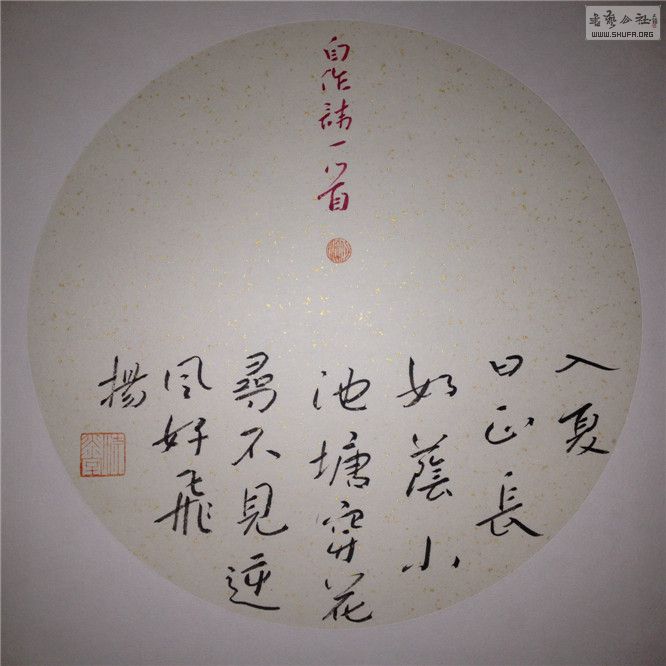 自作詩一首
入夏
日正長
如蔭小
池塘穿花
尋不見逆
風好飛
揚
書藝公社
WWW.SHUFA.ORG